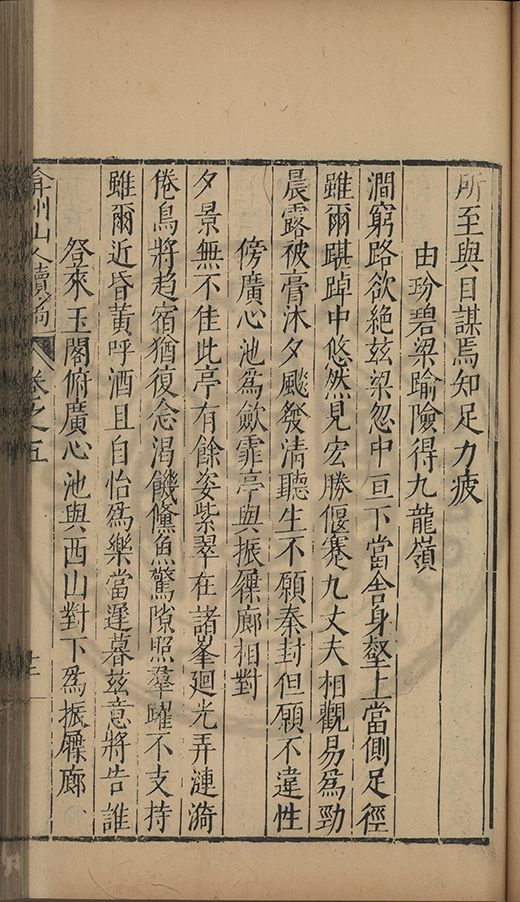 所至與目謀焉知足力疲
由玢碧梁踰險得九龍嶺
澗窮路欲絶玆梁忽中亘下當舍身壑上當側足徑
雖爾踸踔中悠然見宏勝偃蹇九丈夫相觀易爲勁
晨露被膏沐夕颷發清聽生不願秦封但願不違性
傍廣心池爲歛霏亭與振屧廊相對
夕景無不佳此亭有餘姿紫翠在諸峯廻光弄漣漪
倦鳥將趋宿猶復念渴饑儵魚驚隙照羣躍不支持
雖爾近昏黃呼酒且自怡爲樂當遲暮玆意將告誰
登來玉閣俯廣心池與西山對下爲振屧廊
弇州山人續稿 卷之五